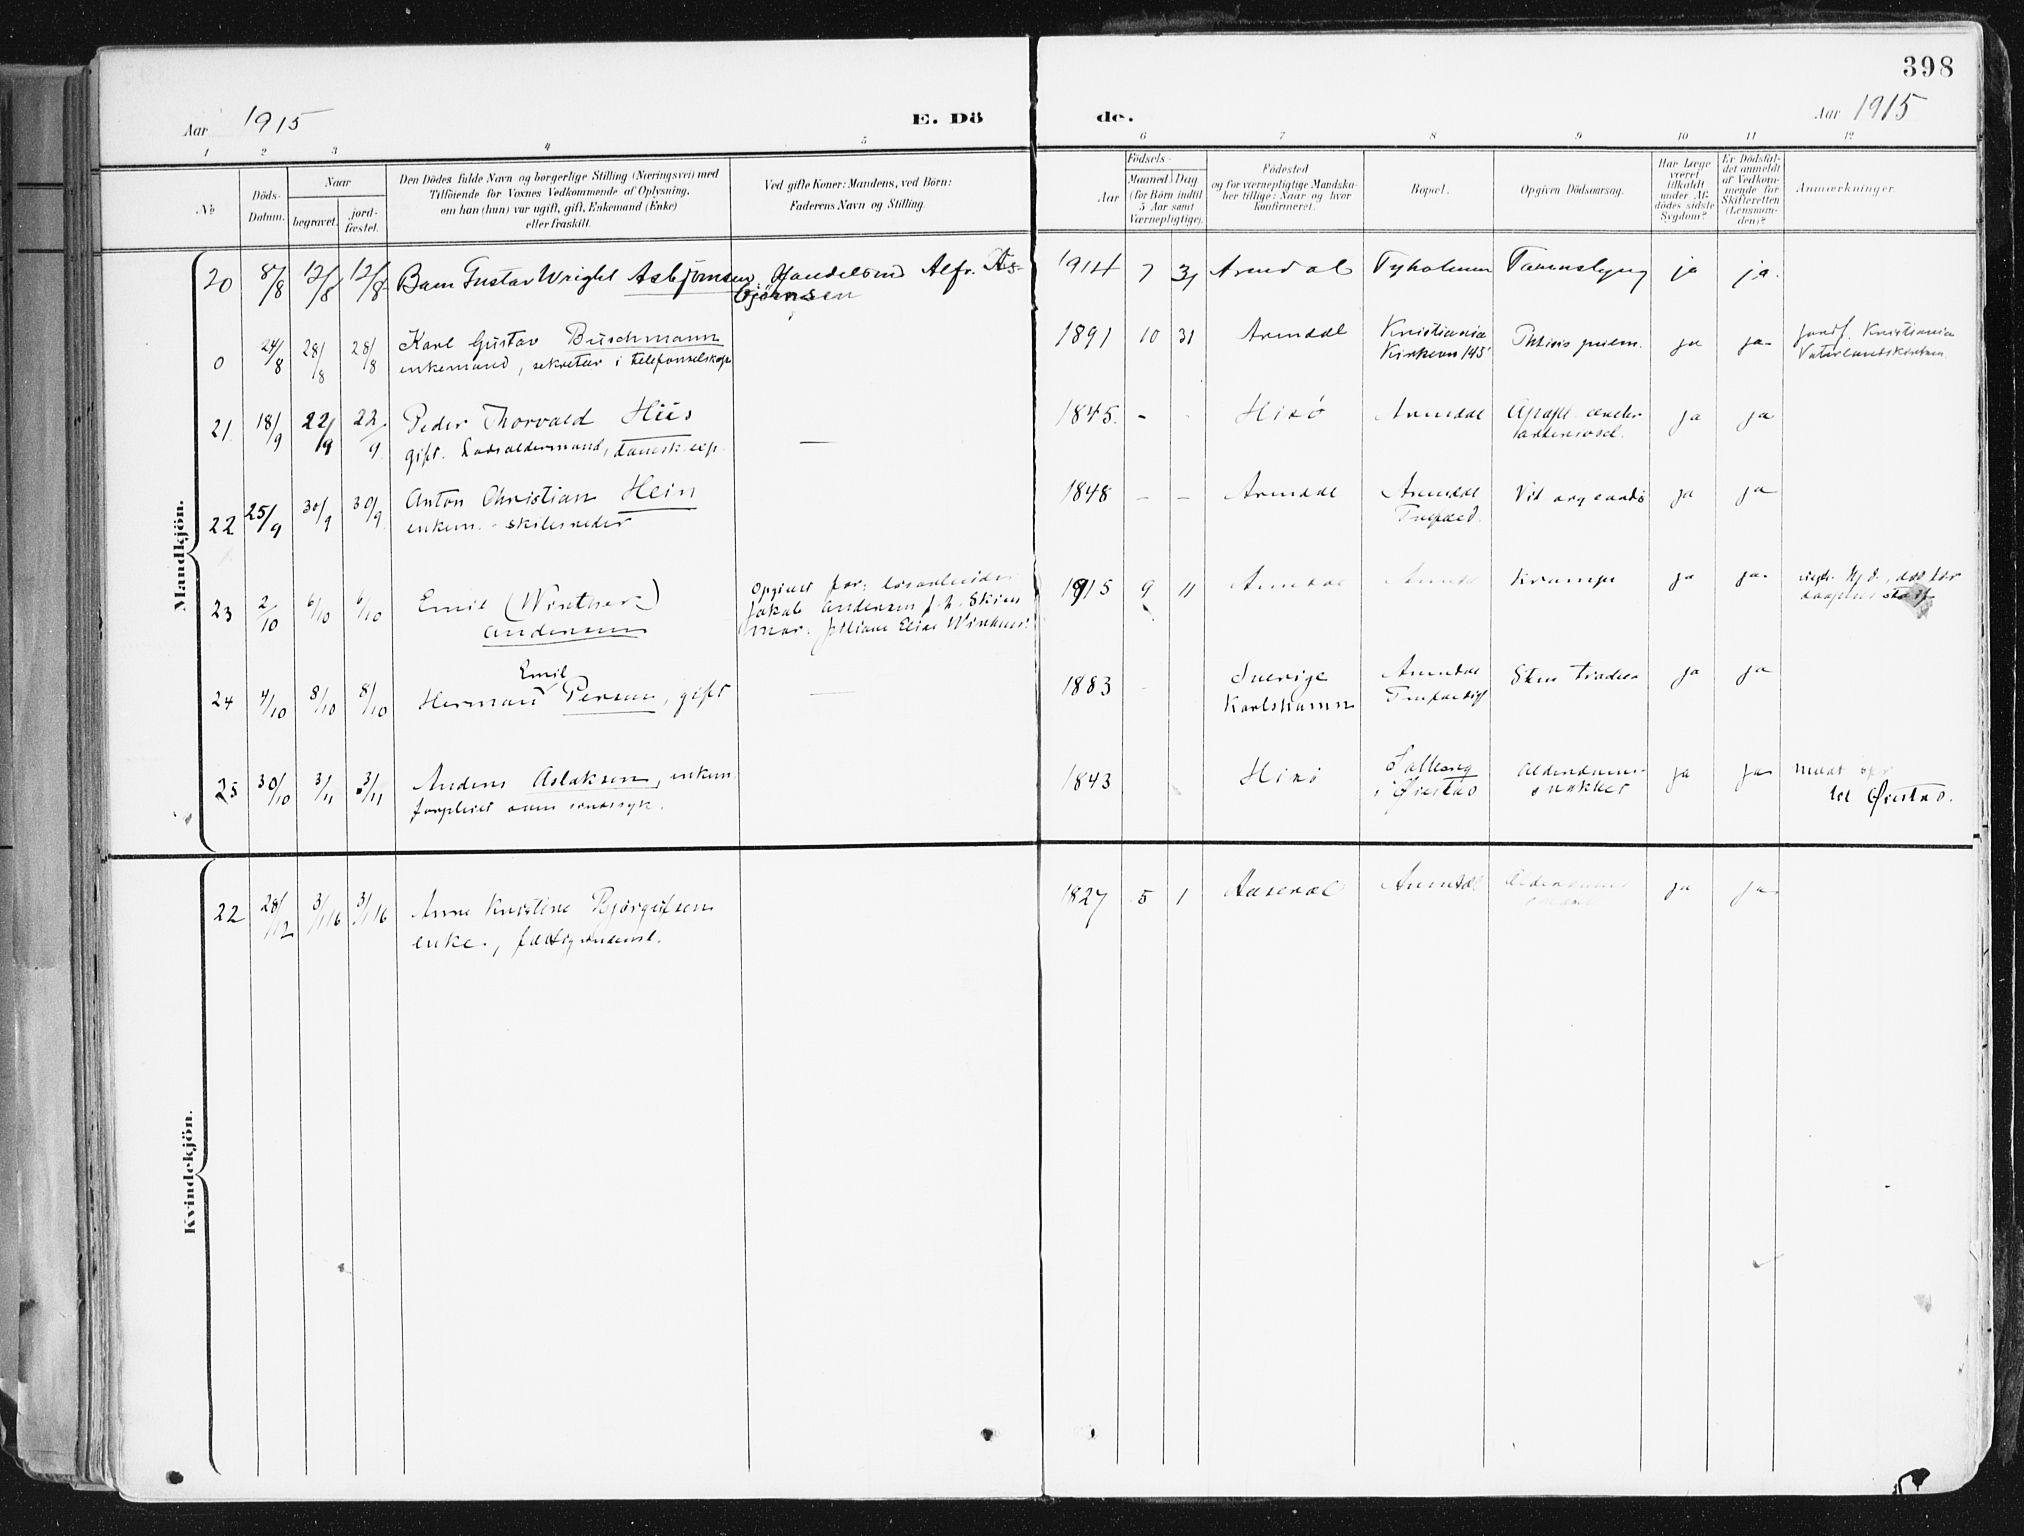 398
Aar 1915
E. Dö
de.
Aar 1915
1 2 3 4 5 6 7 8 9 10 11 12
No
Döds-
Datum.
Naar
begravet.
jord-
fæstet.
Den Dödes fulde Navn og borgerlige Stilling (Næringsvei) med
Tilföiende for Voxnes Vedkommende af Oplysning,
om han (hun) var ugift, gift, Enkemand (Enke)
eller fraskilt.
Ved gifte Koner: Mandens, ved Börn:
Faderens Navn og Stilling.
Födsels-
Aar
Maaned
Dag
(for Börn indtil
5 Aar samt
Værnepligtige).
Födested
og for værnepligtige Mandska-
ber tillige: Naar og hvor
konfirmeret.
Bopæl.
Opgiven Dödsaarsag.
Har Læge
været
tilkaldt
under Af-
dödes sidste
Sygdom?
Er Dödsfal-
det anmeldt
af Vedkom-
mende for
Skifteretten
(Lensman-
den)?
Anmærkninger.
Mandkjön.
20 8/8 12/8 12/8 Barn Gustav Wright Asbjörnsen Handelsmd Alfr. As-
bjørnsen
1914 7 31 Arendal Tyholmen ja ja.
0 24/8 28/8 28/8 Karl Gustav Buschmann
enkemand, sekretær i telefonselskap
1891 10 31 Arendal Kristiania
Kirkevn 145 ja ja
jordf. Kristiania
21. 18/9 22/9 22/9 Peder Thorvald Hüs
gift. Lodsoldermand, dansk
1845. - Hisø Arendal ja ja
22 25/9 30/9 30/9 Anton Christian Hein
enkem. - skibsreder
1848 - - Arendal Arendal ja ja
23 2/10 6/10 6/10 Emil (Winther)
Andersen
Opgivet far: løsarbeider
Jakob Andersen f. h. Skien
mor. Elise Winther.
1915 9 11 Arendal Arendal Krampe ja ja
24 4/10 8/10 8/10 Emil
Herman Person, gift
1883 - Sverige
Karlshamn
Arendal ja ja
25 30/10 3/11 3/11 Anders Aslaksen, enkem.
forpleiet som sindssyk.
1843 Hisø
i Øiestad
Alderdoms-
svakhet ja ja
til Øiestad.
Kvindekjön.
22 28/12 3/1 16 3/1 16 Anne Kristine Bjørgufsen
enke., fattigunderst.
1827 5 1 Aaseral Arendal ja ja